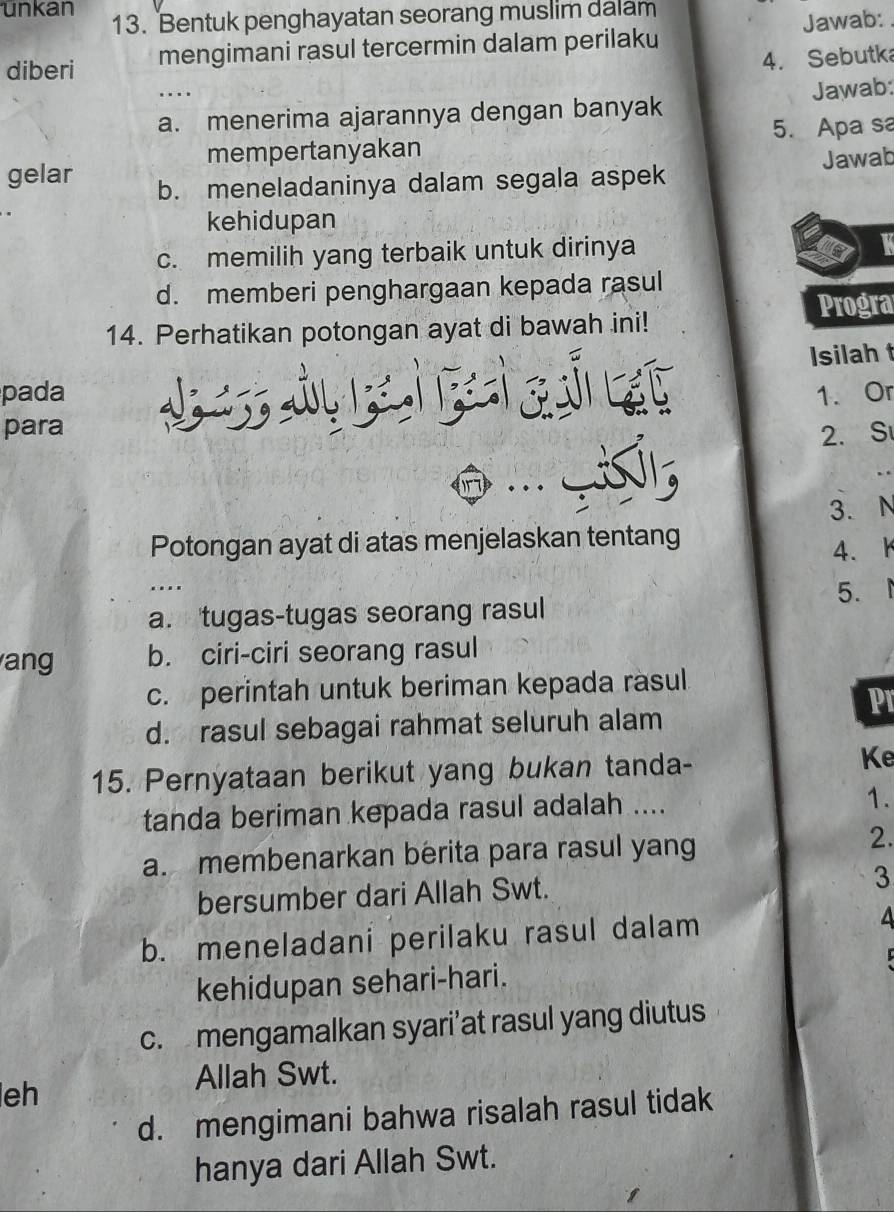 unkan
diberi
gelar
..
pada
para
yang
leh
13. Bentuk penghayatan seorang muslim dalam
mengimani rasul tercermin dalam perilaku
....
a. menerima ajarannya dengan banyak
mempertanyakan
b. meneladaninya dalam segala aspek
kehidupan
c. memilih yang terbaik untuk dirinya
d. memberi penghargaan kepada rasul
14. Perhatikan potongan ayat di bawah ini!
يٰٓاَيُّهَا الَّذِيْنَ اٰمَنُوْٓا اٰمِنُوْا بِاللّٰهِ وَرَسُوْلِهٖ
وَالْكِتٰبِ ... ۝١٣٦
Potongan ayat di atas menjelaskan tentang
....
a. tugas-tugas seorang rasul
b. ciri-ciri seorang rasul
c. perintah untuk beriman kepada rasul
d. rasul sebagai rahmat seluruh alam
15. Pernyataan berikut yang bukan tanda-
tanda beriman kepada rasul adalah ....
a. membenarkan berita para rasul yang
bersumber dari Allah Swt.
b. meneladani perilaku rasul dalam
kehidupan sehari-hari.
c. mengamalkan syari'at rasul yang diutus
Allah Swt.
d. mengimani bahwa risalah rasul tidak
hanya dari Allah Swt.
Jawab: .
4. Sebutka
Jawab:
5. Apa sa
Jawab
Progra
Isilah t
1. Or
2. Su
..
3. N
4. K
5.
Pr
Ke
1.
2.
3
4